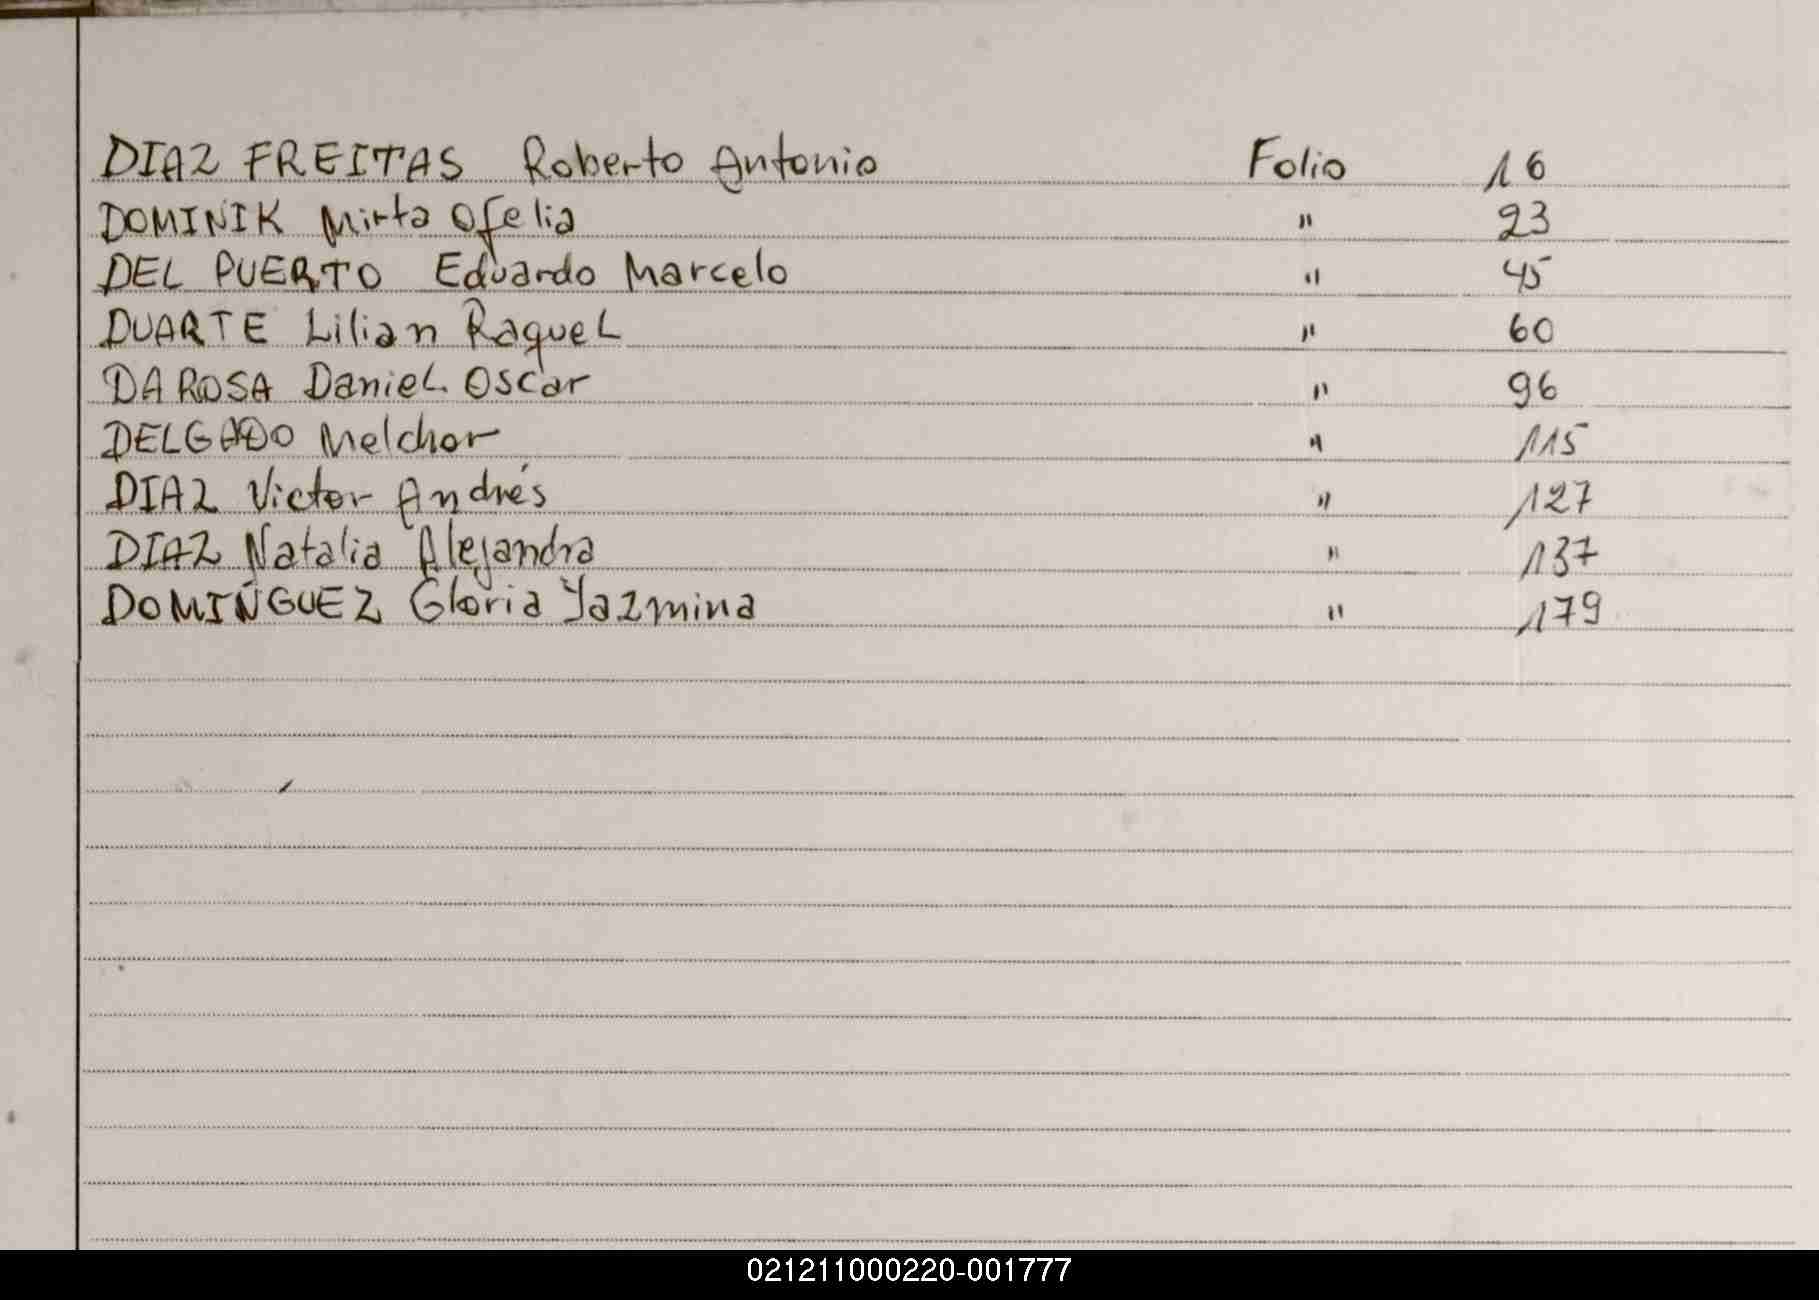 DIAZ FREITAS Roberto Antonio Folio 16
DOMINIK Mirta Ofelia " 23
DEL PUERTO Eduardo Marcelo " 45
DUARTE Lilian Raquel " 60
DA ROSA Daniel Oscar " 96
DELGADO Melchor " 115
DIAZ Victor Andrés " 127
DIAZ Natalia Alejandra " 137
DOMIÑGUEZ Gloria Yazmina " 179
021211000220-001777